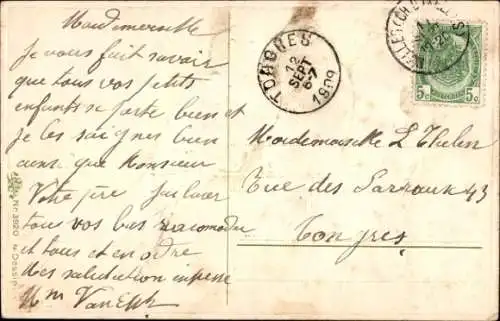 Mademoiselle
Je vous fait savoir
que tous vos petits
enfants se porte bien et
je les saignes bien
ainsi que Monsieur
Votre père
tous vos bas racomodu
et tous et en ordre
des salutation
Mm
TONGRES
12
SEPT
6-7
1909
5c 5c
Mademoiselle L Thelen
Rue des 43
Tongres
No. 3920